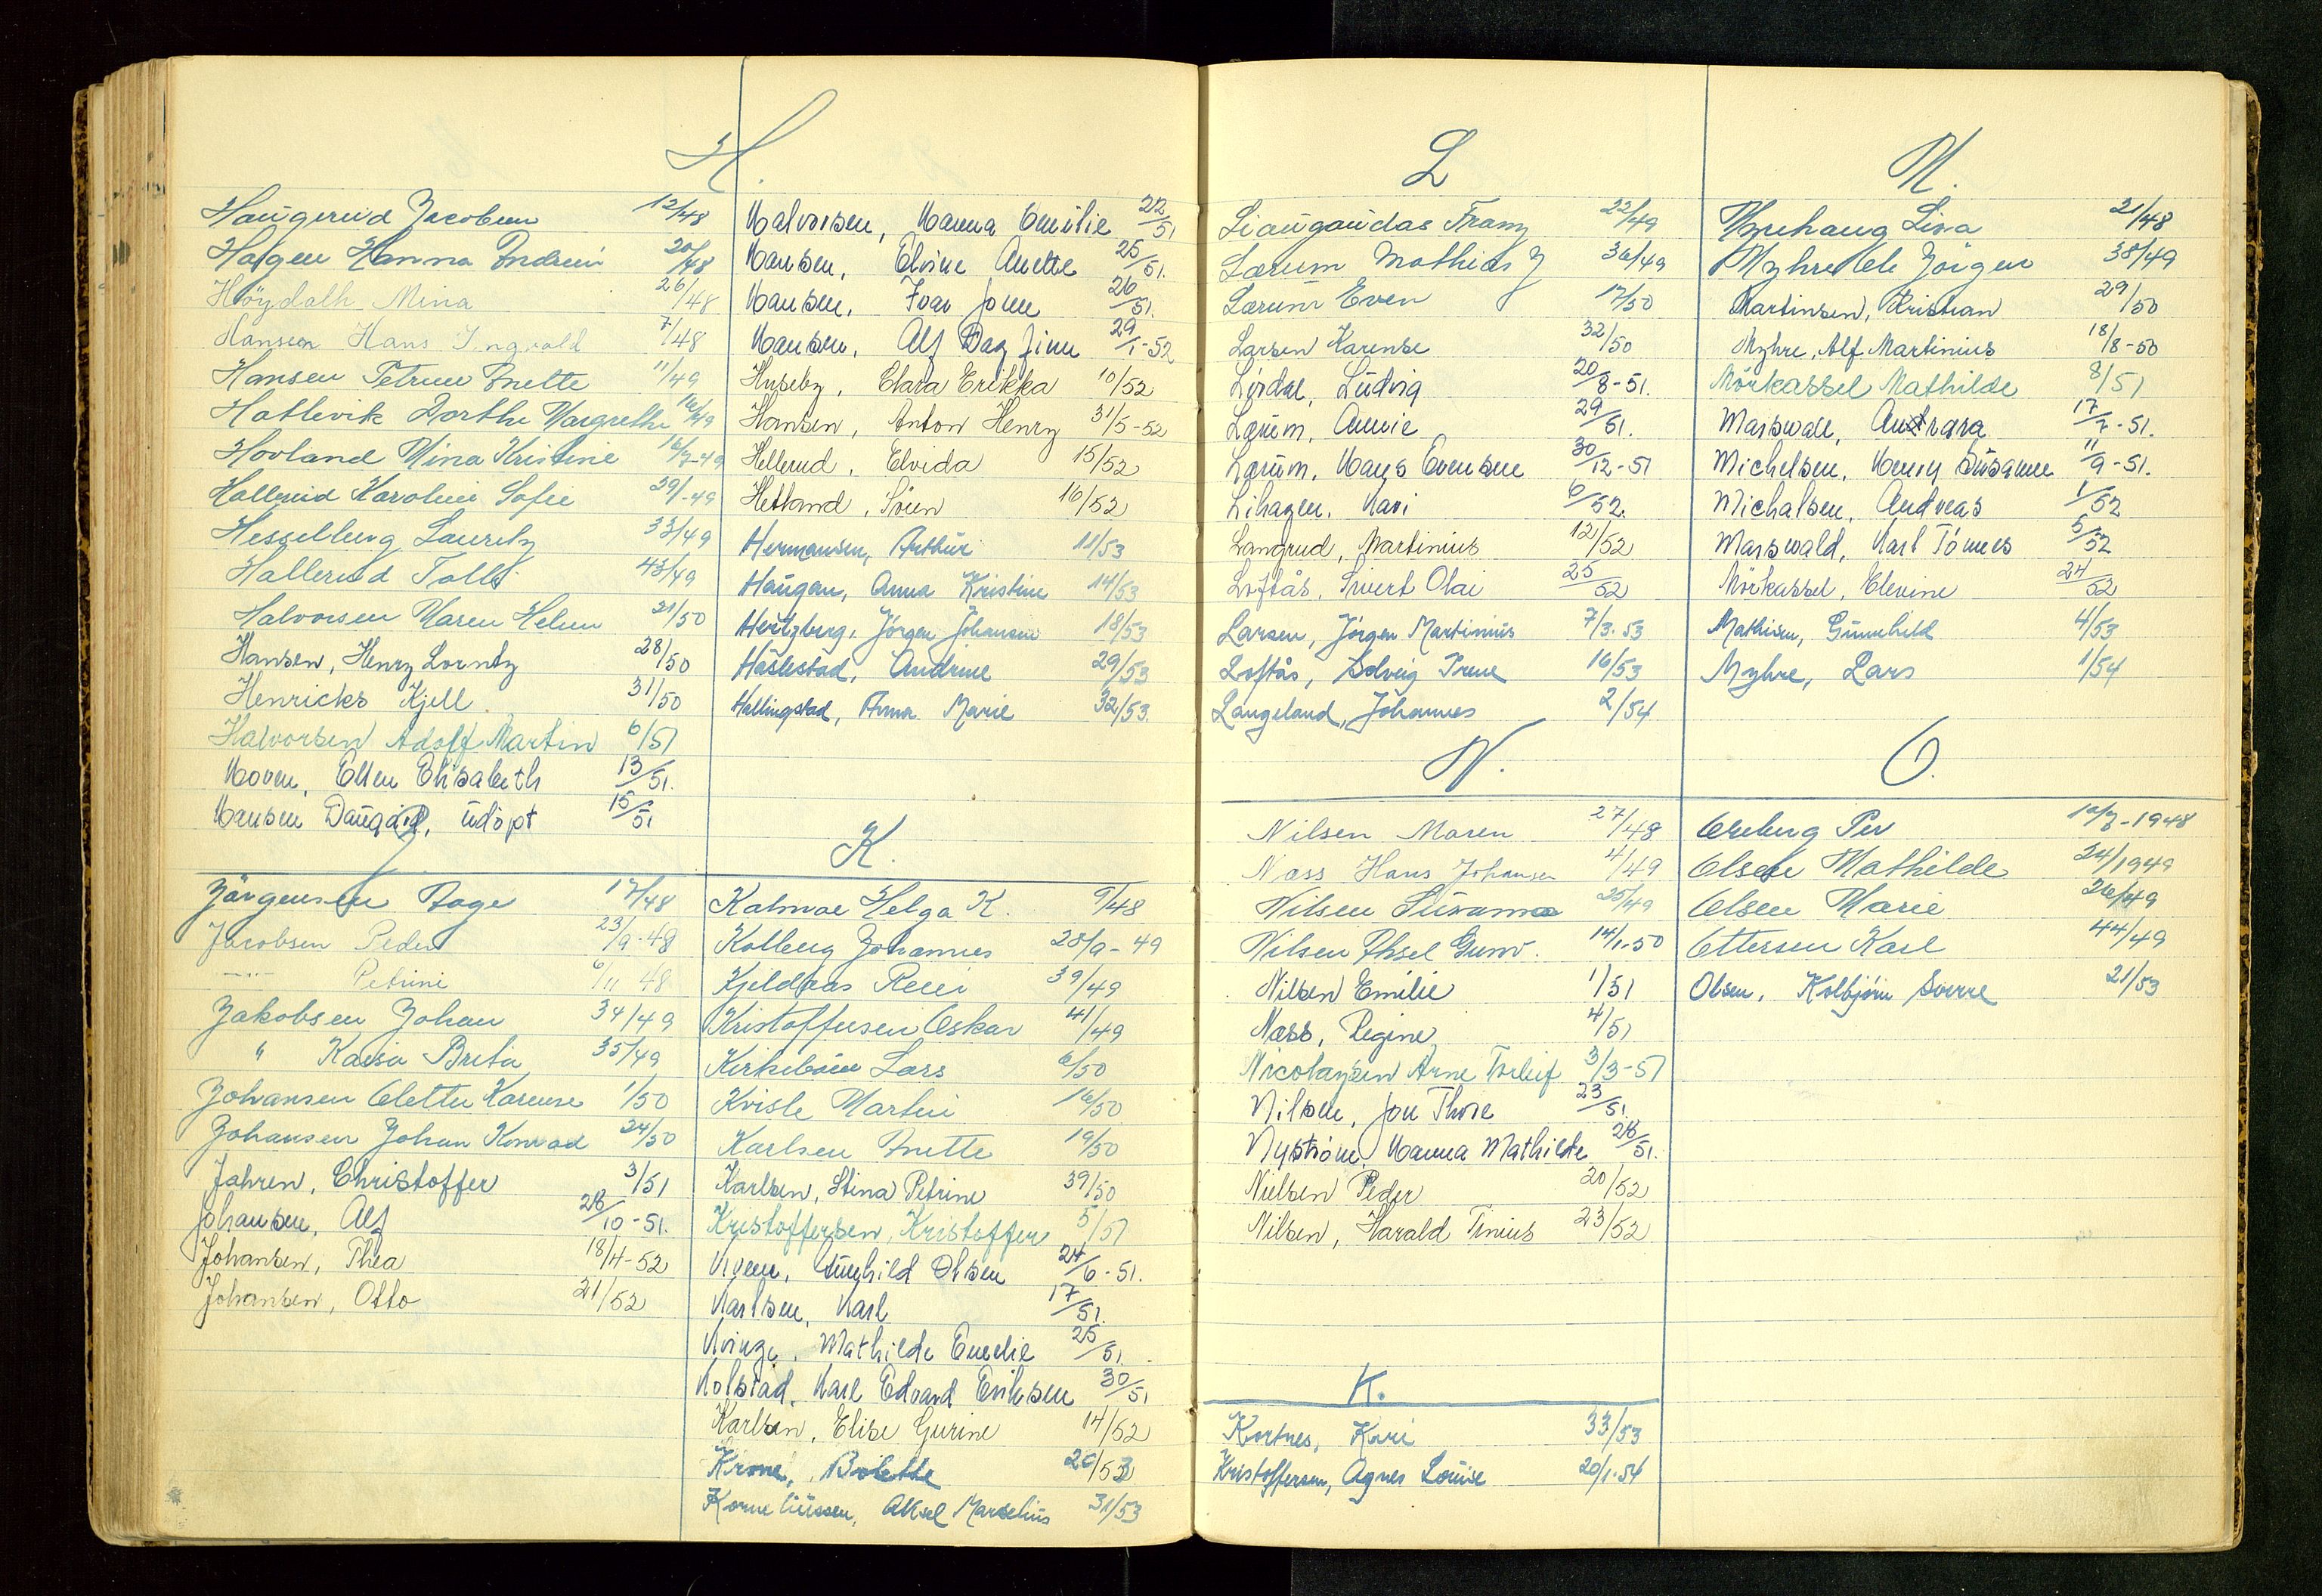 H.
Haugerud Jacobeen 12/48
Halgen Hanna Indrein 20/48
Höydalh Mina 26/48
Hansen Hans Ingvald 7/48
Hansen Petrine Anette 11/49
Hatlevik Dorthe Margrethe 16/49
Hovland Mina Kristine 16/7-49
Hallerud Karoline Sofie 29/-49
Hesselberg Lauritz 33/49
Hallerud Tolli 43/49
Halvorsen Maren Helen 21/50
Hansen, Henry Lorntz 28/50
Henricks Kjell. 31/50
Halvorsen Adolf Martin 6/51
Hoven, Ellen Elisabeth 13/51.
Hansen Daugård, udöpt 15/51
Halvorsen, Hanna Emilie 22/51
Hansen, Elvine Anette 25/51.
Hansen, Ivar John 26/51.
Hansen, Alf Dag Finn 29/1-52
Huseby, Clara Erikka 10/52
Hansen, Anton Henry 31/5-52
Hellerud, Elvida 15/52
Hetland, Sören 16/52
Hermansen, Arthur 11/53
Haugan, Anna Kristine 14/53
Hertzberg, Jörgen Johansen 18/53
Håslestad, Andrine 29/53
Hallingstad, Anna Marie 32/53.
Jörgensen Aage 17/48
Jacobsen Peder 23/9-48
—"— Petrine 6/11 48
Jakobsen Johan 34/49
" Kaisa Brita 35/49
Johansen Olette Karense 1/50
Johansen Johan Konrad 24/50
Jahren, Christoffer 3/51
Johansen, Alf 28/10-51.
Johansen, Thea 18/4-52
Johansen, Otto 21/52
K.
Kalmoe Helga K. 9/48
Kolberg Johannes 28/9-49
Kjeldaas Reiei 39/49
Kristoffersen Oskar 41/49
Kirkebøen Lars 6/50
Kvisle Martin 16/50
Karlsen Anette 19/50
Karlsen, Stina Petrine 39/50
Kristoffersen, Kristoffer 5/51
Kveen, Gunhild Olsen 24/6-51.
Karlsen, Karl 17/51.
Kvinge, Mathilde Emelie 25/51.
Kolstad, Karl Edvard Eriksen 30/51
Karlsen, Elise Gurine 14/52
Krone, Bolette 20/53
Korneliussen, Aksel Marselius 31/53
L
Liaugaudas Franz 22/49
Lærum Mathias J 36/49
Lærum Even 17/50
Larsen Karense 32/50
Lirdal, Ludvig 20/8-51.
Lærum, Annie 29/51.
Lærum, Hans Evensen 30/12-51
Lihagen, Kari 6/52.
Langrud, Martinius 12/52
Loftås, Sivert Olai 25/52
Larsen, Jörgen Martinius 7/3.53
Loftås, Solveig Irene 16/53
Langeland, Johannes 2/54
M.
Morhaug Lina 21/48
Myhre Ole Jörgen 38/49
Martinsen, Kristian 29/50
Myhre, Alf Martinius 18/8-50
Mörkassel Mathilde 8/51
Marswall, Antrara 17/7-51.
Michelsen, Henry Susanne 11/9-51.
Michalsen, Andreas 1/52
Marswald, Karl Tömes 5/52
Mörkassel, Elevine 24/52
Mathisen, Gunnhild 4/53
Myhre, Lars 1/54
N.
Nilsen Maren 27/48
Næss Hans Johansen 4/49
Nilsen Susanna 25/49
Nilsen Aksel Gunv. 14/1-50
Nilsen Emilie 1/51
Næss, Regine 4/51
Nicolaysen Arne Torleif 3/3-51
Nilsen, Jon Thore 23/51
Nyström, Hanna Mathilde 28/51.
Nielsen Peder 20/52
Nilsen, Harald Tinius 23/52
O.
Oreberg Per 10/7-1948
Olsen Mathilde 24/1949
Olsen Marie 26/49
Ottersen Karl 44/49
Olsen, Kolbjörn Sverre 21/53
K.
Kortnes, Kari 33/53
Kristoffersen, Agnes Louise 20/1.54